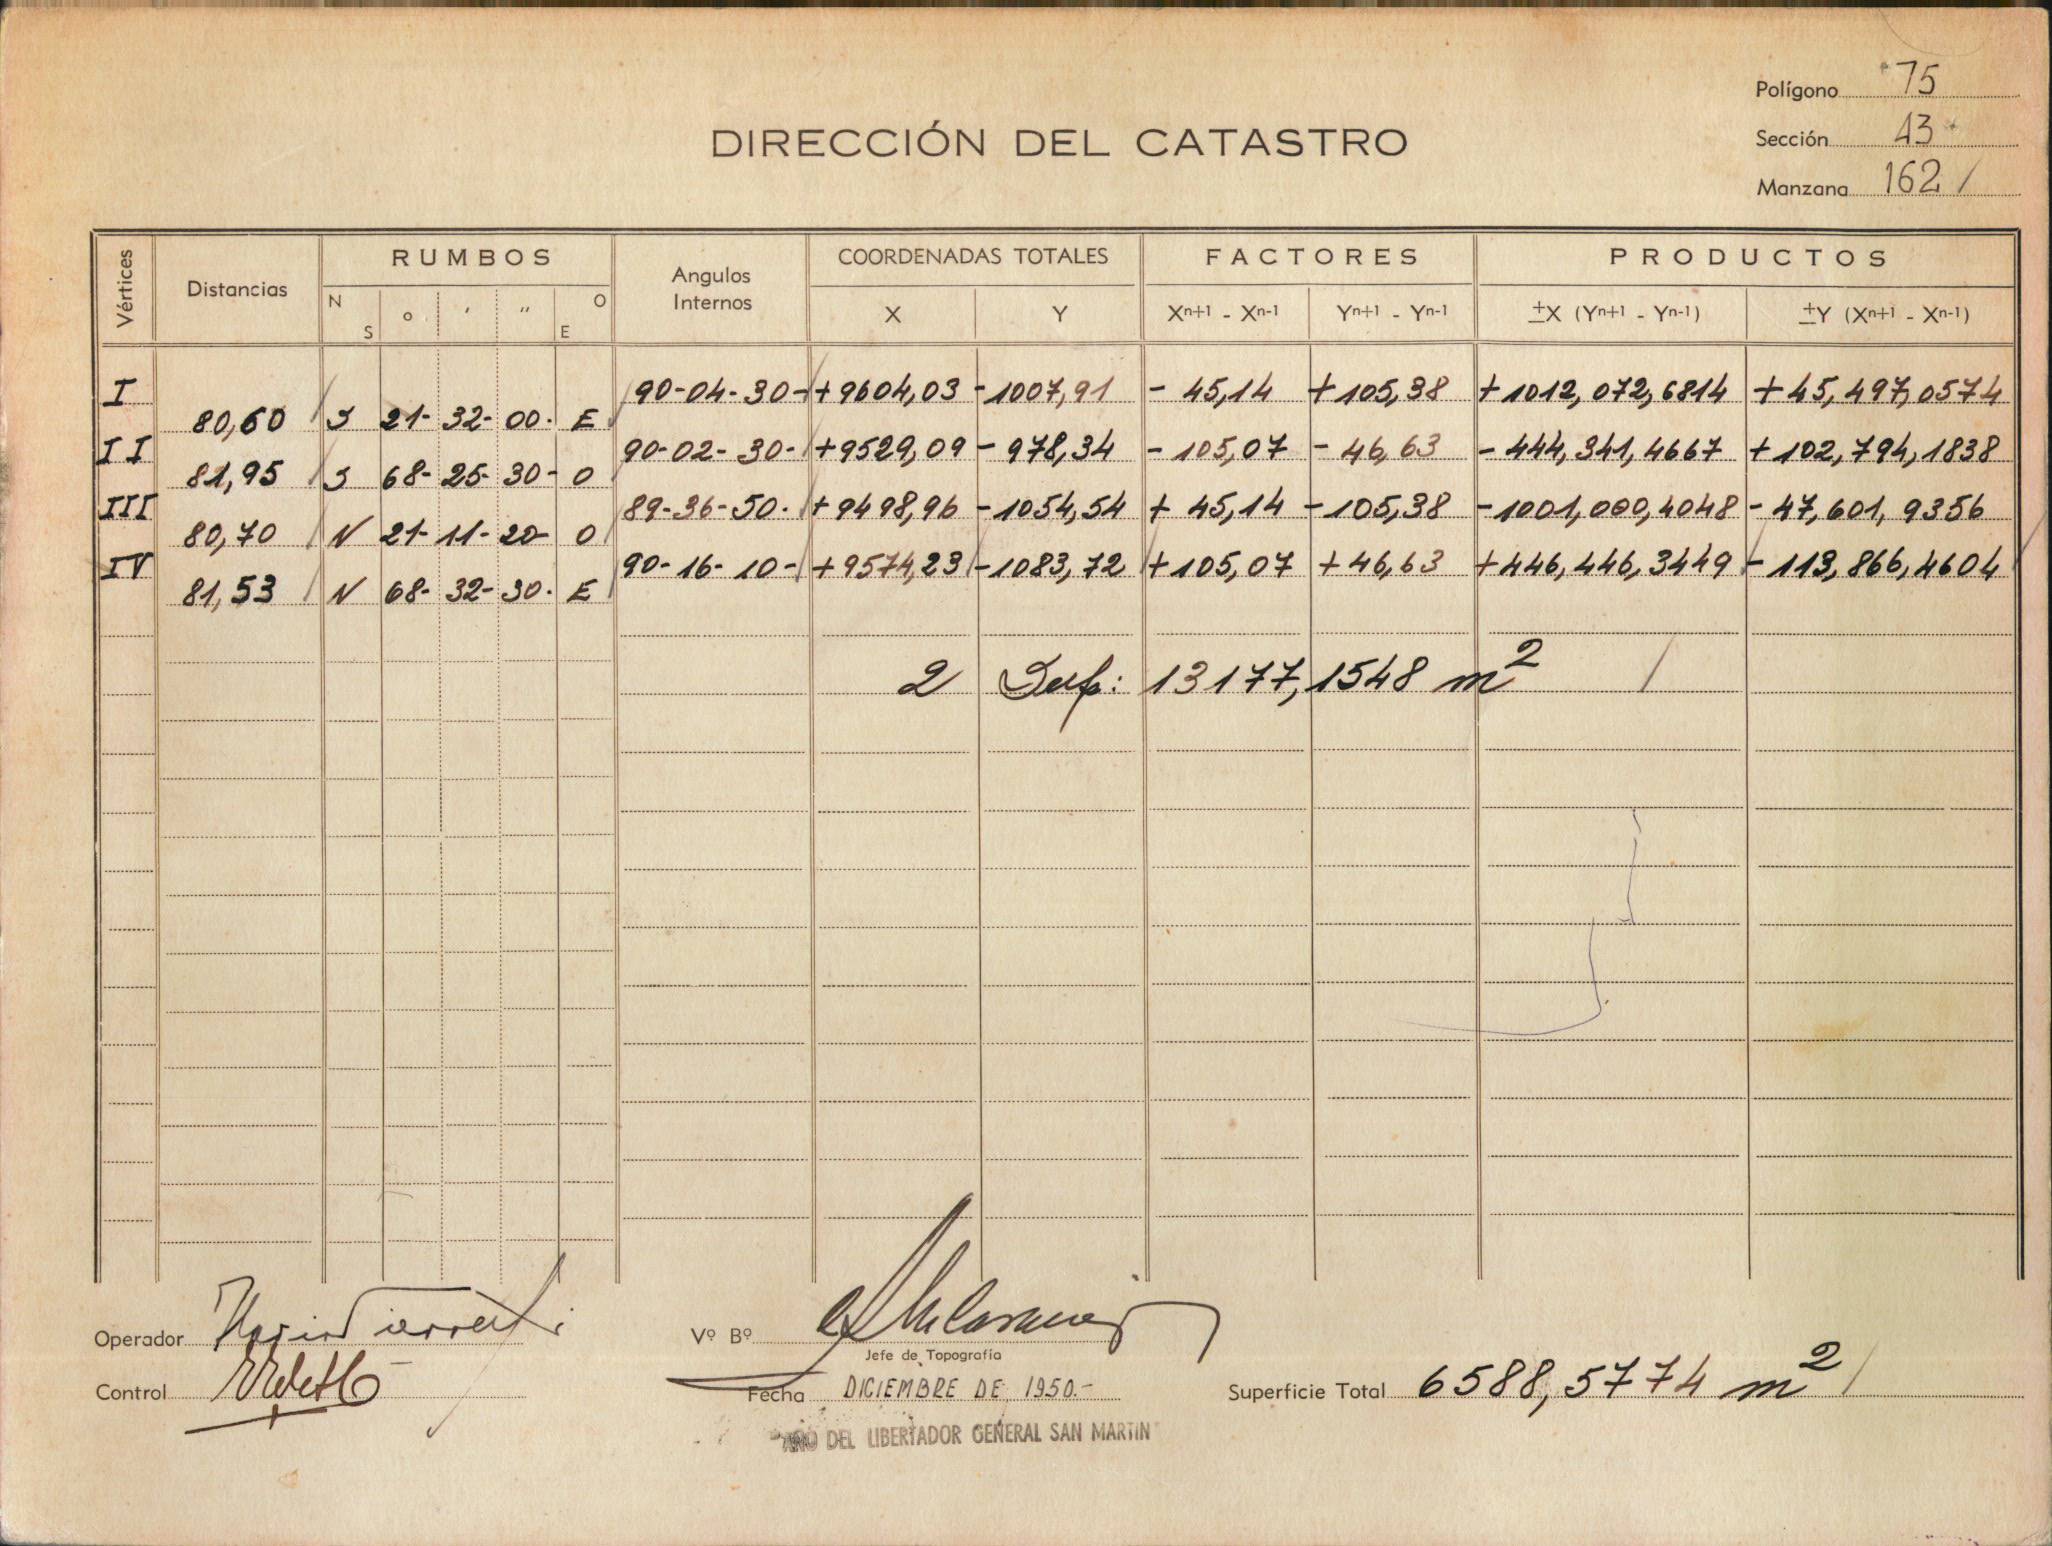 Polígono 75
DIRECCIÓN DEL CATASTRO
Sección 43
Manzana 162 /
Vértices
Distancias
RUMBOS
N S
o ' "
O E
Angulos Internos
COORDENADAS TOTALES
X Y
FACTORES
Xn+1 - Xn-1 Yn+1 - Yn-1
PRODUCTOS
±X (Yn+1 - Yn-1) ±Y (Xn+1 - Xn-1)
I 90-04-30- +9604,03 -1007,91 - 45,14 +105,38 +1012,072,6814 +45,497,0574
80,60 S 21- 32- 00- E
II 90-02-30- +9529,09 - 978,34 - 105,07 - 46,63 - 444,341,4667 +102,794,1838
81,95 S 68- 25- 30- O
III 89-36-50. +9498,96 -1054,54 + 45,14 -105,38 -1001,000,4048 - 47,601,9356
80,70 N 21- 11- 20- O
IV 90-16-10- +9574,23 -1083,72 +105,07 +46,63 +446,446,3449 - 113,866,4604
81,53 N 68- 32- 30. E
2 Sup: 13177,1548 m2 /
Operador
Vº Bº
Jefe de Topografía
Control
Fecha DICIEMBRE DE 1950.-
Superficie Total 6588,5774 m2 /
AÑO DEL LIBERTADOR GENERAL SAN MARTIN